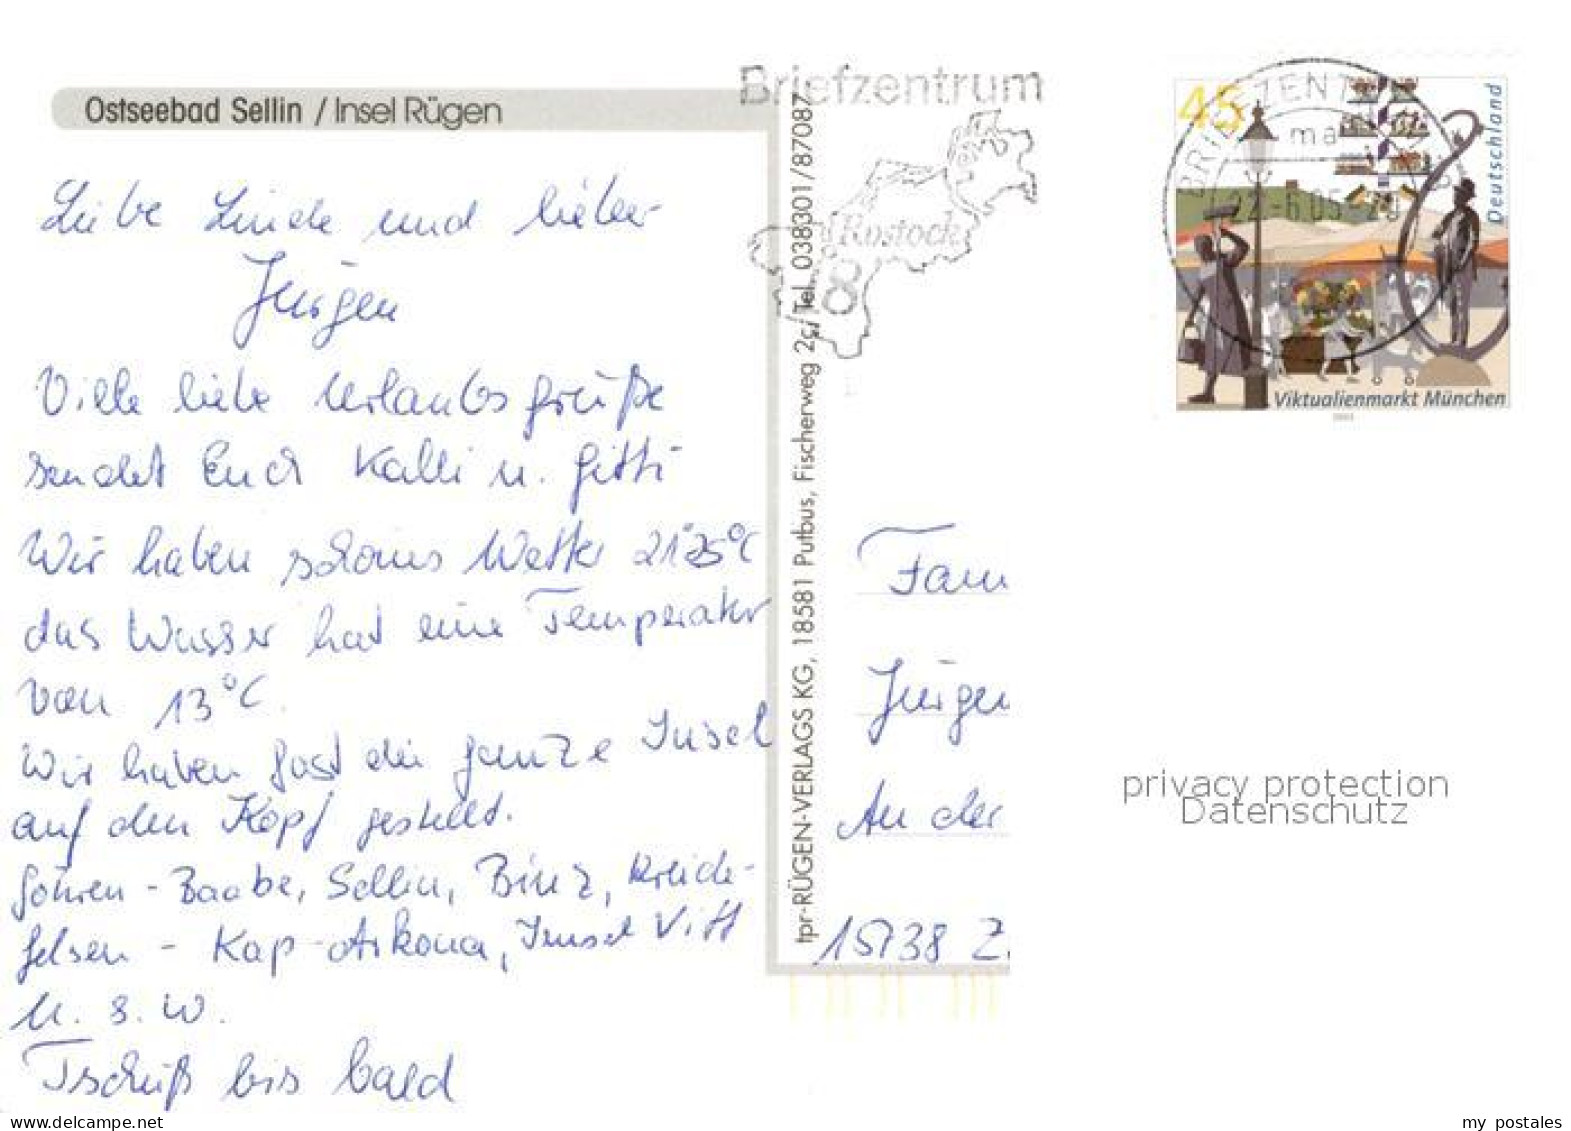 Ostseebad Sellin / Insel Rügen
Liebe Linde und lieber
Jürgen
Viele liebe Urlaubsgrüße
sendet Euch Kalli u. Gitti
Wir haben schönes Wetter 21°25°C
das Wasser hat eine Temperatur
von 13°C.
Wir haben fast die ganze Insel
auf den Kopf gestellt.
Göhren - Baabe, Sellin, Binz, Kreide-
felsen - Kap-Arkona, Insel Vitt
u. s. w.
Tschüß bis bald
tpr-RÜGEN-VERLAGS KG, 18581 Putbus, Fischerweg 2c, Tel. 038301/87087
Briefzentrum
Rostock
18
45
Deutschland
BRIEFZENTRUM
ma
22.-6.05
Viktualienmarkt München
2003
Fam
Jürgen
An der
15738 Z
privacy protection
Datenschutz
www.delcampe.net
my_postales